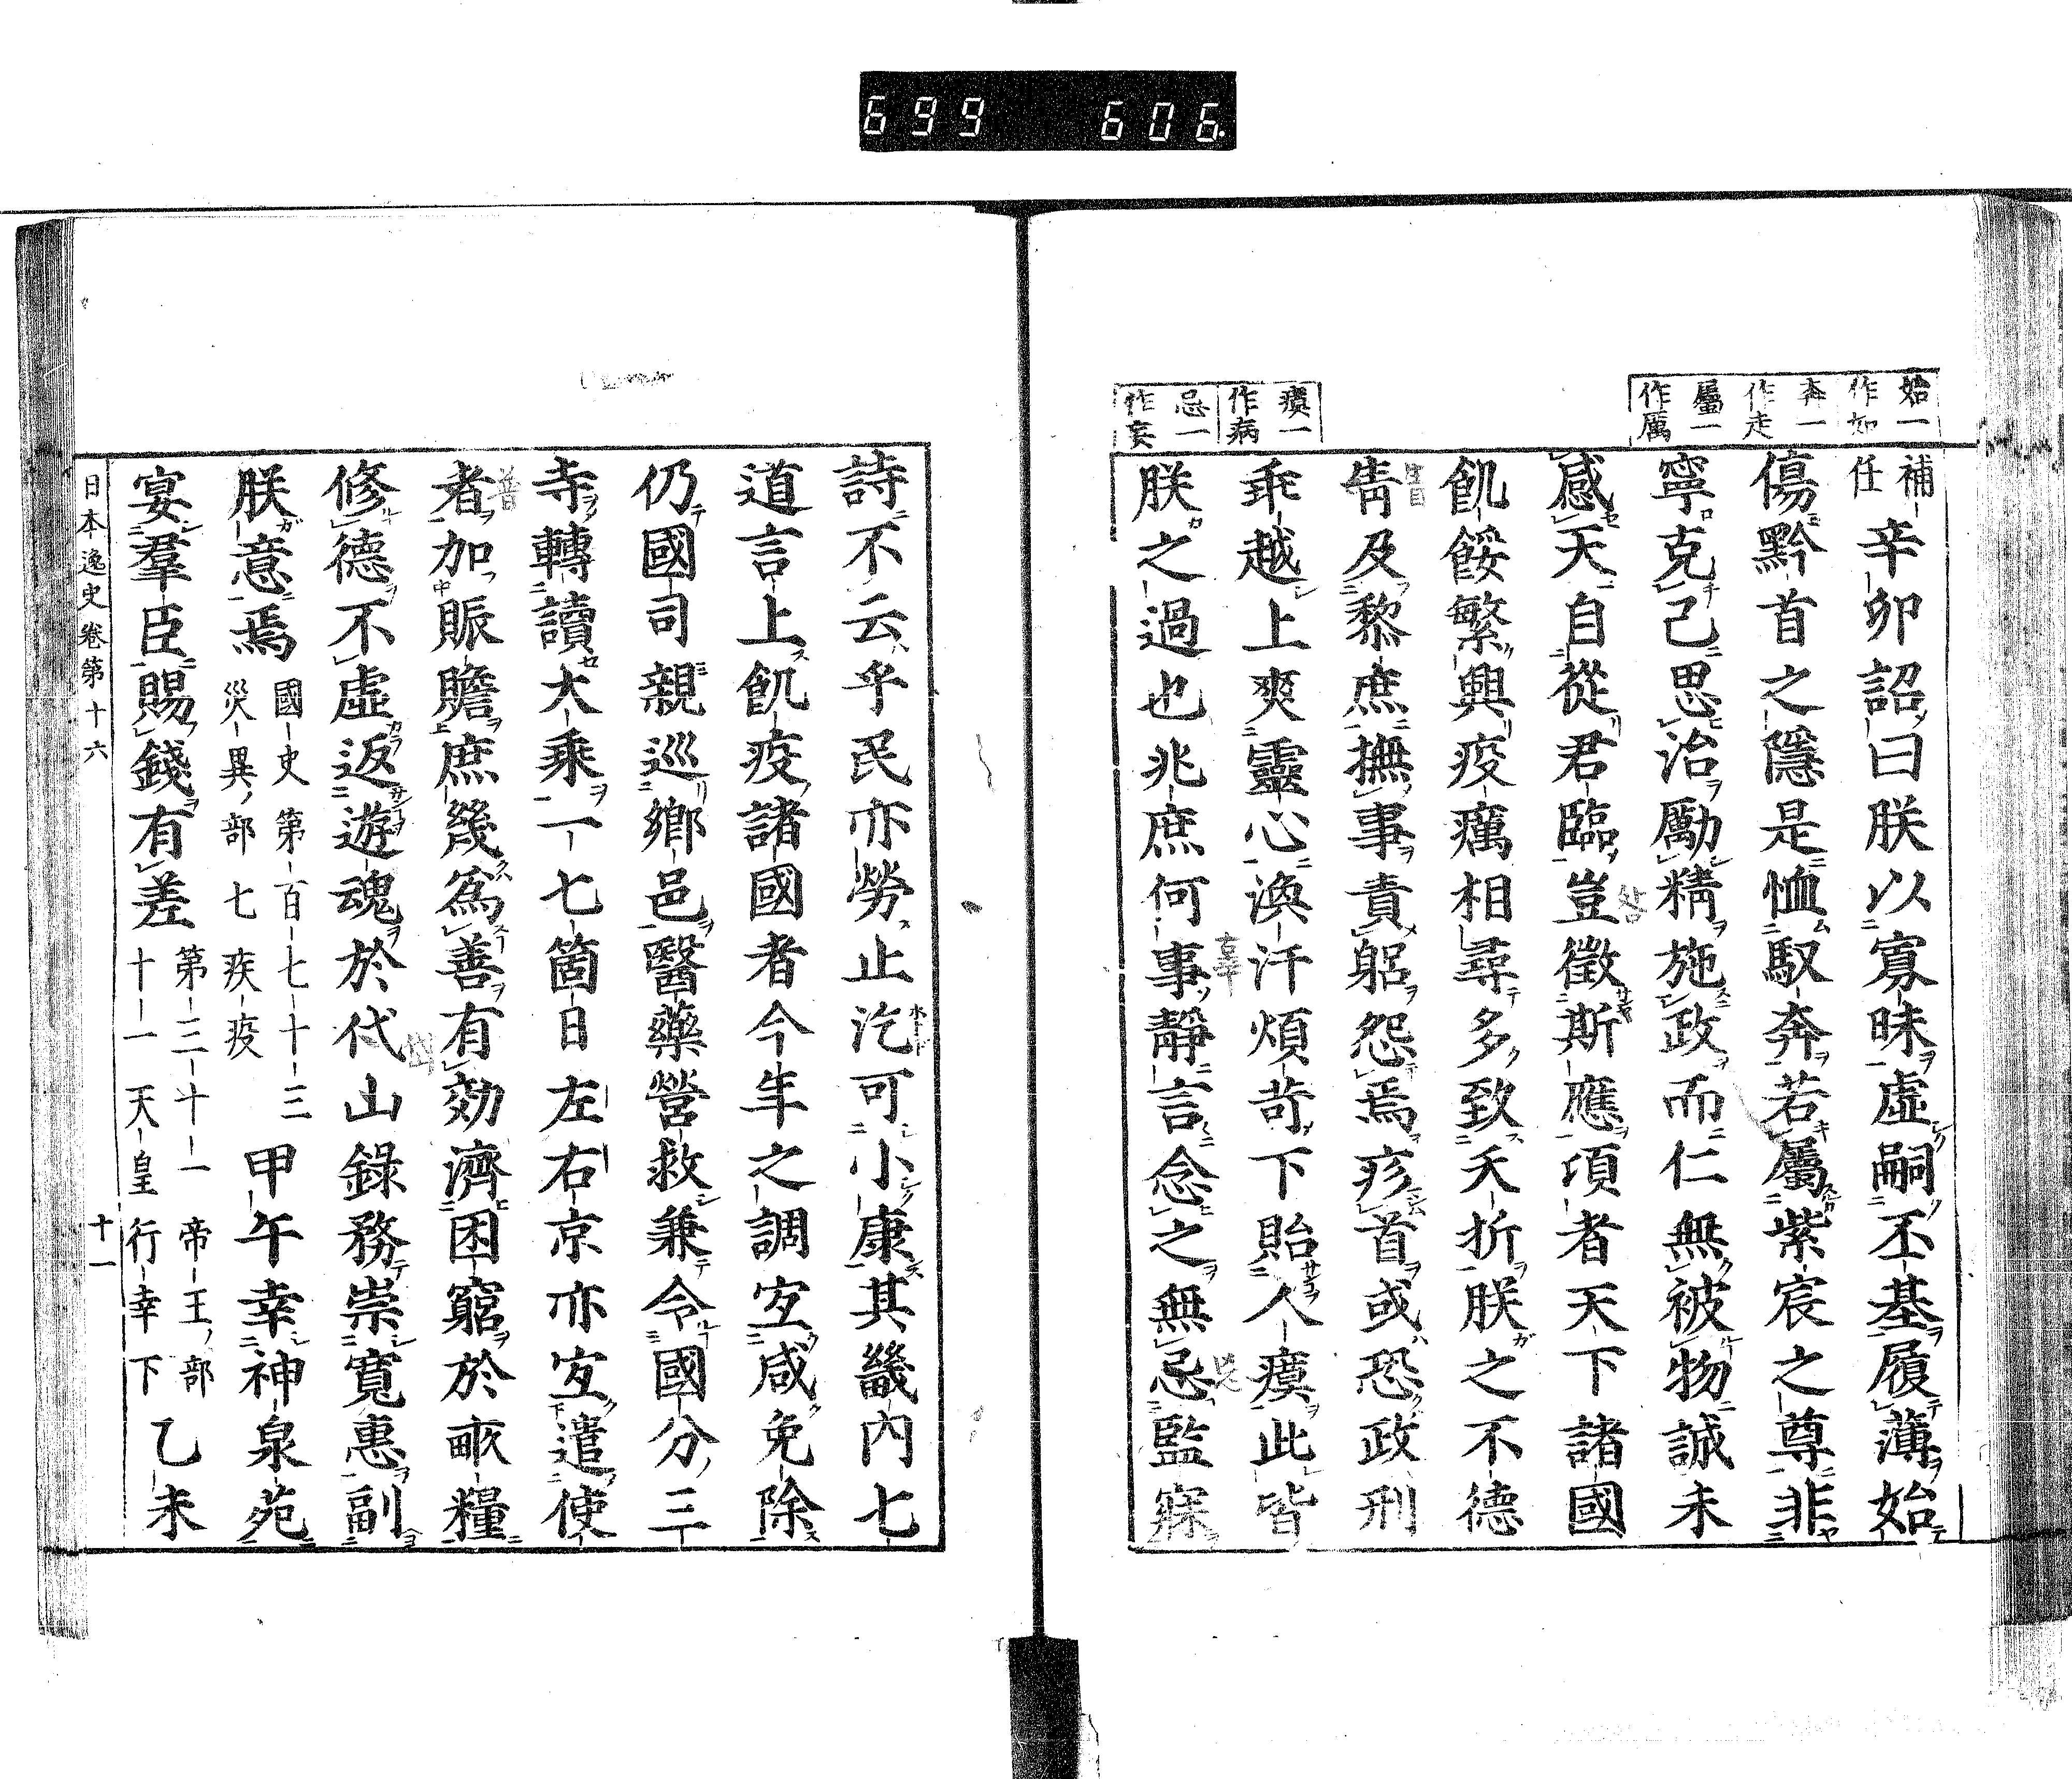 699 606.
始一作如
奔一作走
屬一作厲
瘼一作病
忌一作妄
補任 辛卯詔曰朕以寡昧虛嗣丕基履薄始
傷黔首之隱是恤馭奔若屬紫宸之尊非
寧克己思治勵精施政而仁無被物誠未
感天自從君臨豈徵斯應項者天下諸國
飢餒繁興疫癘相尋多致夭折朕之不德
眚及黎庶撫事責躬怨焉疹首或恐政刑
乖越上爽靈心渙汗煩苛下貽人瘼此皆
朕之過也兆庶何事靜言念之無忌監寐
詩不云乎民亦勞止汔可小康其畿內七
道言上飢疫諸國者今年之調宐咸免除
仍國司親巡鄉邑醫藥營救兼令國分三
寺轉讀大乘一七箇日左右京亦宐遣使
者加賑贍庶幾爲善有効濟困窮於畝糧
修德不虛返遊魂於代山錄務崇寬惠副
朕意焉 國史第百七十三災異部七疾疫 甲午幸神泉苑
宴羣臣賜錢有差 第三十一帝王部十一天皇行幸下 乙未
日本逸史 卷第十六 十一